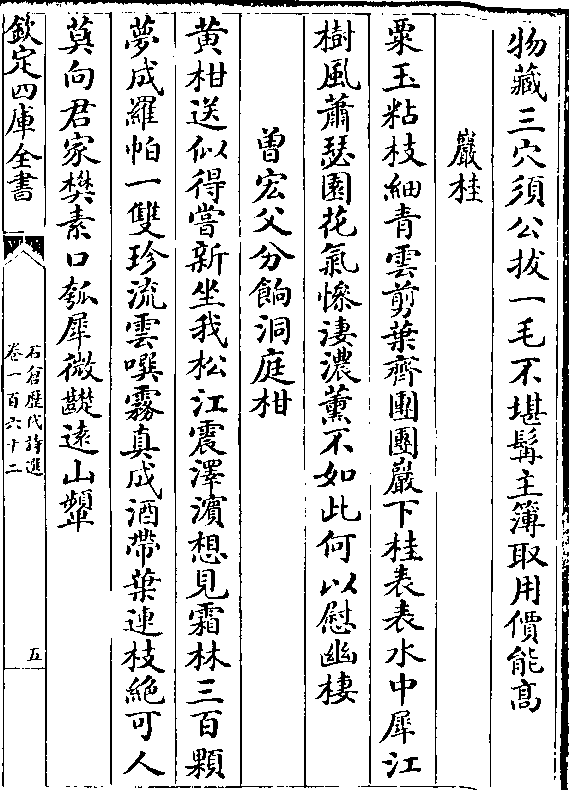 物藏三穴須公拔一毛不堪髯主簿取用價能高
巖桂
粟玉粘枝細青雲剪葉齊團團巖下桂表表水中犀江
樹風蕭瑟園花氣慘淒濃薰不如此何以慰幽棲
曽宏父分餉洞庭柑
黄柑送似得嘗新坐我松江震澤濵想見霜林三百顆
夢成羅帕一雙珍流雲噀霧真成酒帶葉連枝絶可人
莫向君家樊素口瓠犀微齼逺山顰
欽定四庫全書
石倉歴代詩選
卷一百六十二
五